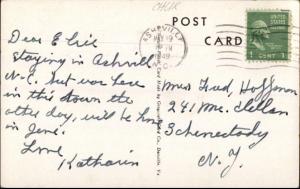 POST
CARD
ASHEVILLE
1949
N.C.
CENT 1
Dear Elsie
Staying in Ashvill
N.C. but was here
in this town the
other day, will be home
in June.
Love
Katharin
Miss Fred Hoffman
241 Mc Clellan
Schenectady
N.Y.